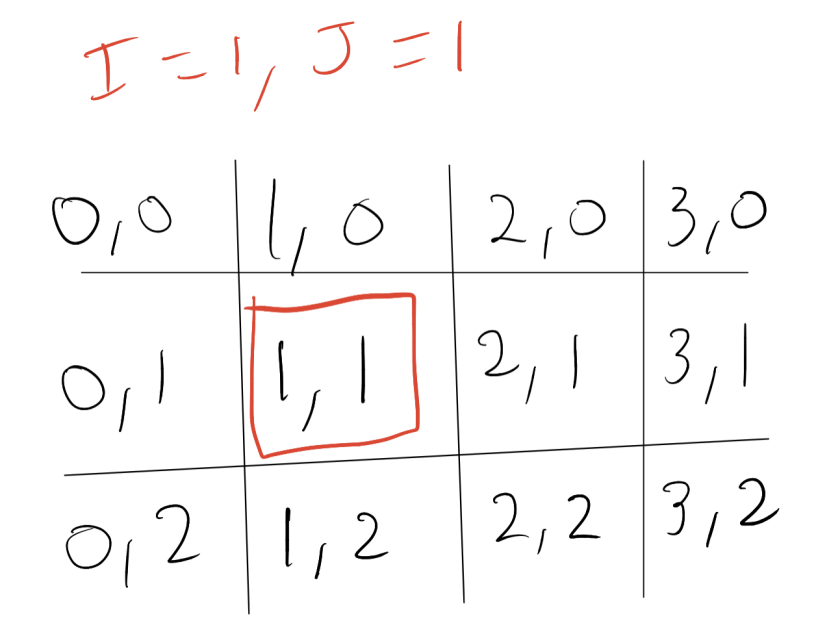 I = 1, J = 1
0,0 1,0 2,0 3,0
0,1 1,1 2,1 3,1
0,2 1,2 2,2 3,2